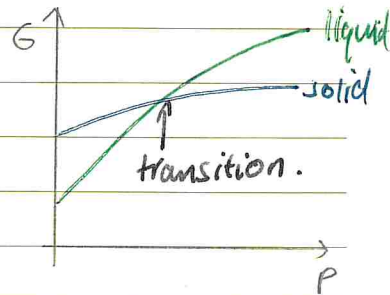 G
liquid
solid
transition.
P